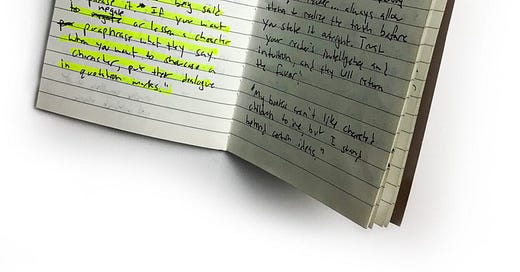 they said
phrase it. If you want
to negate or lessen a character
paraphrase what they say.
when you want to showcase a
character, put their dialogue
in quotation marks."
always allow
them to realize the truth before
you state it outright. Trust
your reader's intelligence and
intuition, and they will return
the favor."
"My books aren't like cherished
children to me, but I stand
behind certain ideas."